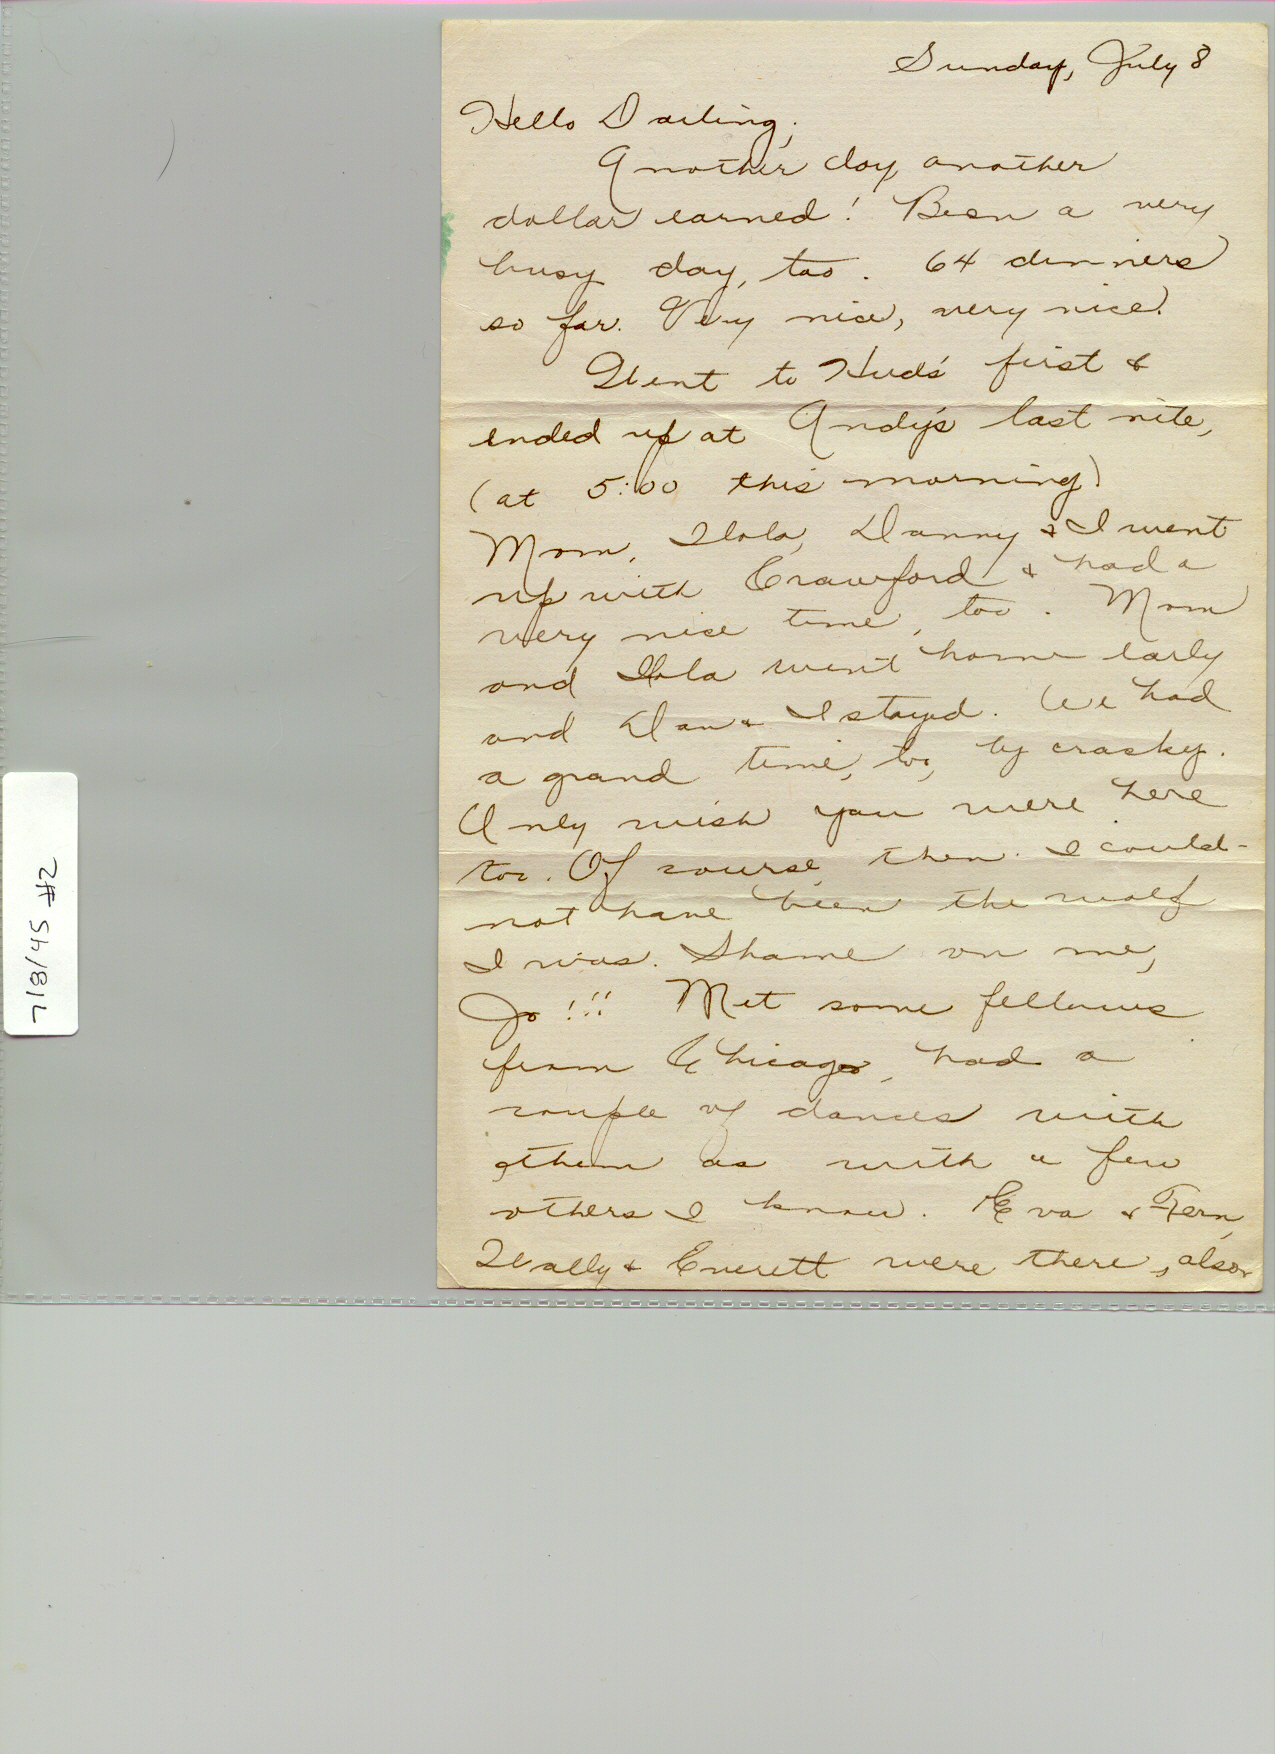 Sunday, July 8
Hello Darling;
Another day, another
dollar earned! Been a very
busy day, too. 64 dinners
so far. Very nice, very nice.
Went to Hud's first &
ended up at Andy's last nite,
(at 5:00 this morning)
Mom, Ilola, Danny & I went
up with Crawford & had a
very nice time, too. Mom
and Ilola went home early
and Dan & I stayed. We had
a grand time, too, by crasky.
Only wish you were here
too. Of course, then I could-
not have been the wolf
I was. Shame on me,
Jo!!! Met some fellows
from Chicago, had a
couple of dances with
them as with a few
others I know. Eva & Fern,
Wally & Everett were there, also
7/8/45 #2